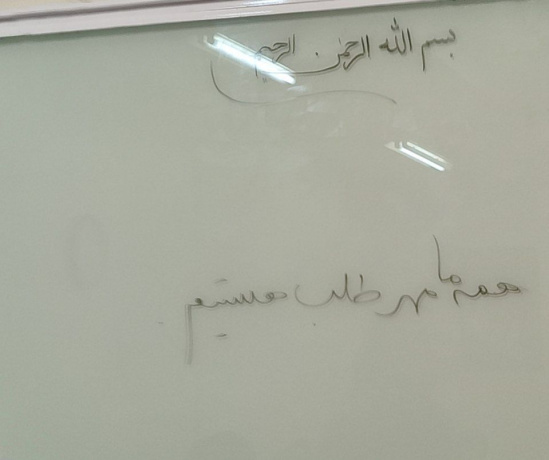 بسم الله الرحمن الرحیم
همه ما مهر طلب هستیم